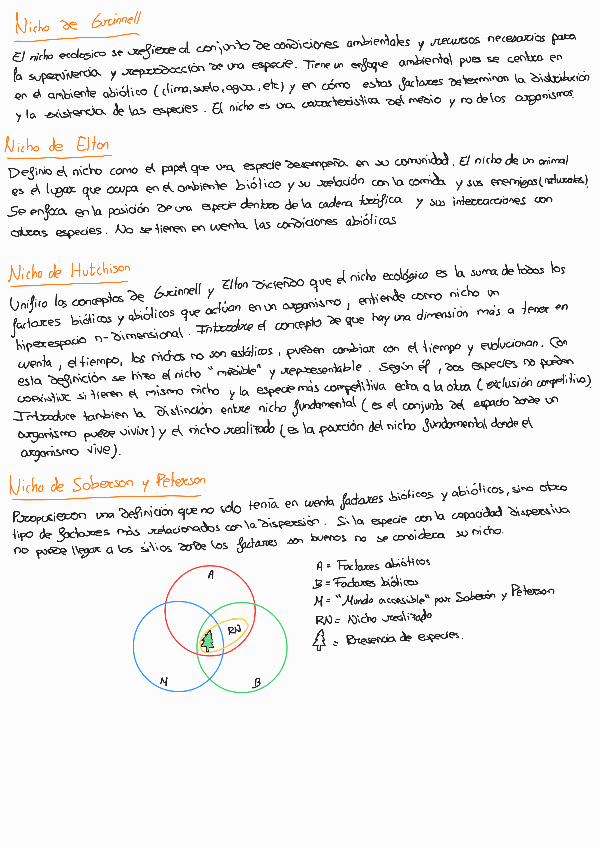 Nicho de Grinnell
El nicho ecologico se refiere al conjunto de condiciones ambientales y recursos necesarios para
la supervivencia y reproducción de una especie. Tiene un enfoque ambiental pues se centra en
en el ambiente abiótico (clima, suelo, agua, etc) y en cómo estos factores determinan la distribución
y la existencia de las especies. El nicho es una característica del medio y no de los organismos.
Nicho de Elton
Definio el nicho como el papel que una especie desempeña en su comunidad. El nicho de un animal
es el lugar que ocupa en el ambiente biótico y su relación con la comida y sus enemigos (naturales).
Se enfoca en la posición de una especie dentro de la cadena trófica y sus interacciones con
otras especies. No se tienen en cuenta las condiciones abióticas
Nicho de Hutchison
Unifico los conceptos de Grinnell y Elton diciendo que el nicho ecológico es la suma de todos los
factores bióticos y abióticos que actúan en un organismo, entiende como nicho un
hiperespacio n-dimensional. Introduce el concepto de que hay una dimensión más a tener en
cuenta, el tiempo, los nichos no son estáticos, pueden cambiar con el tiempo y evolucionar. Con
esta definición se hizo el nicho "medible" y representable. Según él, dos especies no pueden
coexistir si tienen el mismo nicho y la especie más competitiva echa a la otra (exclusión competitiva)
Introduce tambien la distinción entre nicho fundamental (es el conjunto del espacio donde un
organismo puede vivir) y el nicho realizado (es la porción del nicho fundamental donde el
organismo vive).
Nicho de Soberson y Peterson
Propusieron una definición que no solo tenía en cuenta factores bióticos y abióticos, sino otro
tipo de factores más relacionados con la dispersión. Si la especie con la capacidad dispersiva
no puede llegar a los sitios donde los factores son buenos no se considera su nicho.
A
RN
M
B
A = Factores abióticos
B = Factores bióticos
M = "Mundo accesible" por Soberón y Peterson
RN = Nicho realizado
= Presencia de especies.